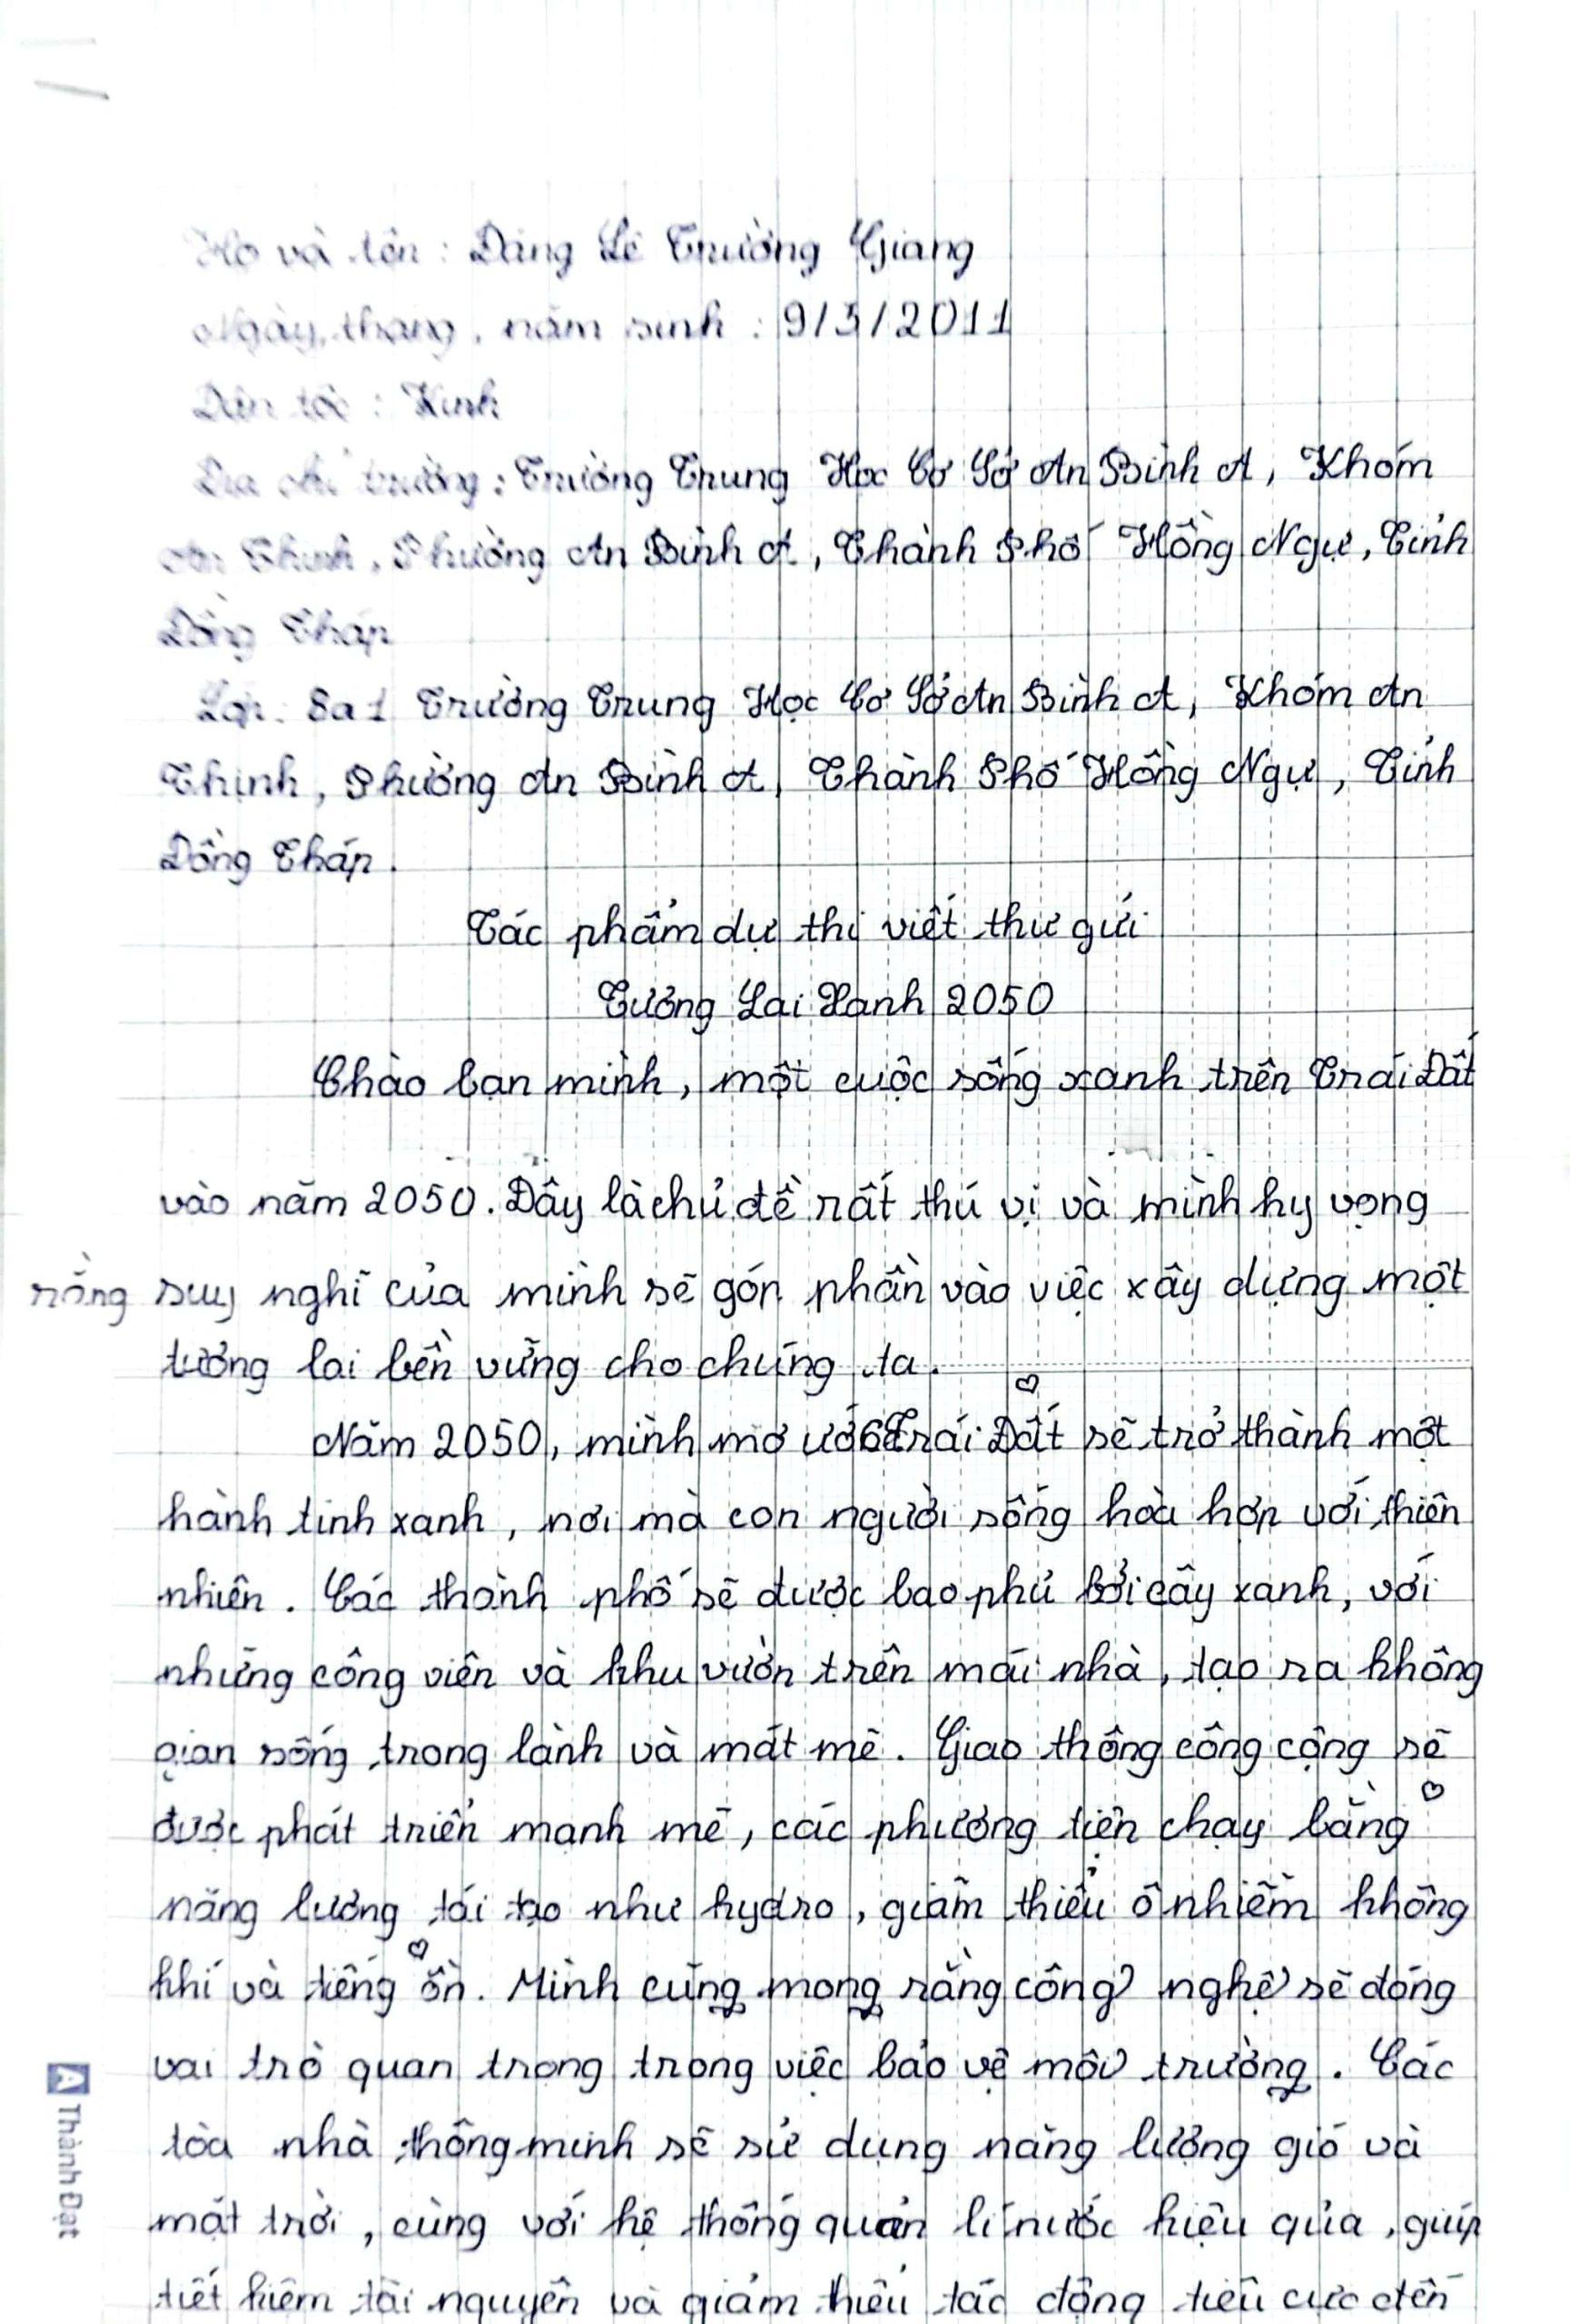 Họ và tên : Đặng Lê Trường Giang
Ngày, tháng, năm sinh : 9/3/2011
Dân tộc : Kinh
Địa chỉ trường : Trường Trung Học Cơ Sở An Bình A, Khóm
An Thịnh, Phường An Bình A, Thành Phố Hồng Ngự, Tỉnh
Đồng Tháp
Lớp: 8a1 Trường Trung Học Cơ Sở An Bình A, Khóm An
Thịnh, Phường An Bình A, Thành Phố Hồng Ngự, Tỉnh
Đồng Tháp.
Tác phẩm dự thi viết thư gửi
Tương Lai Xanh 2050
Chào bạn mình, một cuộc sống xanh trên Trái Đất
vào năm 2050. Đây là chủ đề rất thú vị và mình hy vọng
rằng suy nghĩ của mình sẽ góp phần vào việc xây dựng một
tương lai bền vững cho chúng ta.
Năm 2050, mình mơ ước Trái Đất sẽ trở thành một
hành tinh xanh, nơi mà con người sống hòa hợp với thiên
nhiên. Các thành phố sẽ được bao phủ bởi cây xanh, với
những công viên và khu vườn trên mái nhà, tạo ra không
gian sống trong lành và mát mẻ. Giao thông công cộng sẽ
được phát triển mạnh mẽ, các phương tiện chạy bằng
năng lượng tái tạo như hydro, giảm thiểu ô nhiễm không
khí và tiếng ồn. Mình cũng mong rằng công nghệ sẽ đóng
vai trò quan trọng trong việc bảo vệ môi trường. Các
tòa nhà thông minh sẽ sử dụng năng lượng gió và
mặt trời, cùng với hệ thống quản lí nước hiệu qủa, giúp
tiết kiệm tài nguyên và giảm thiểu tác động tiêu cực đến
A Thành Đạt